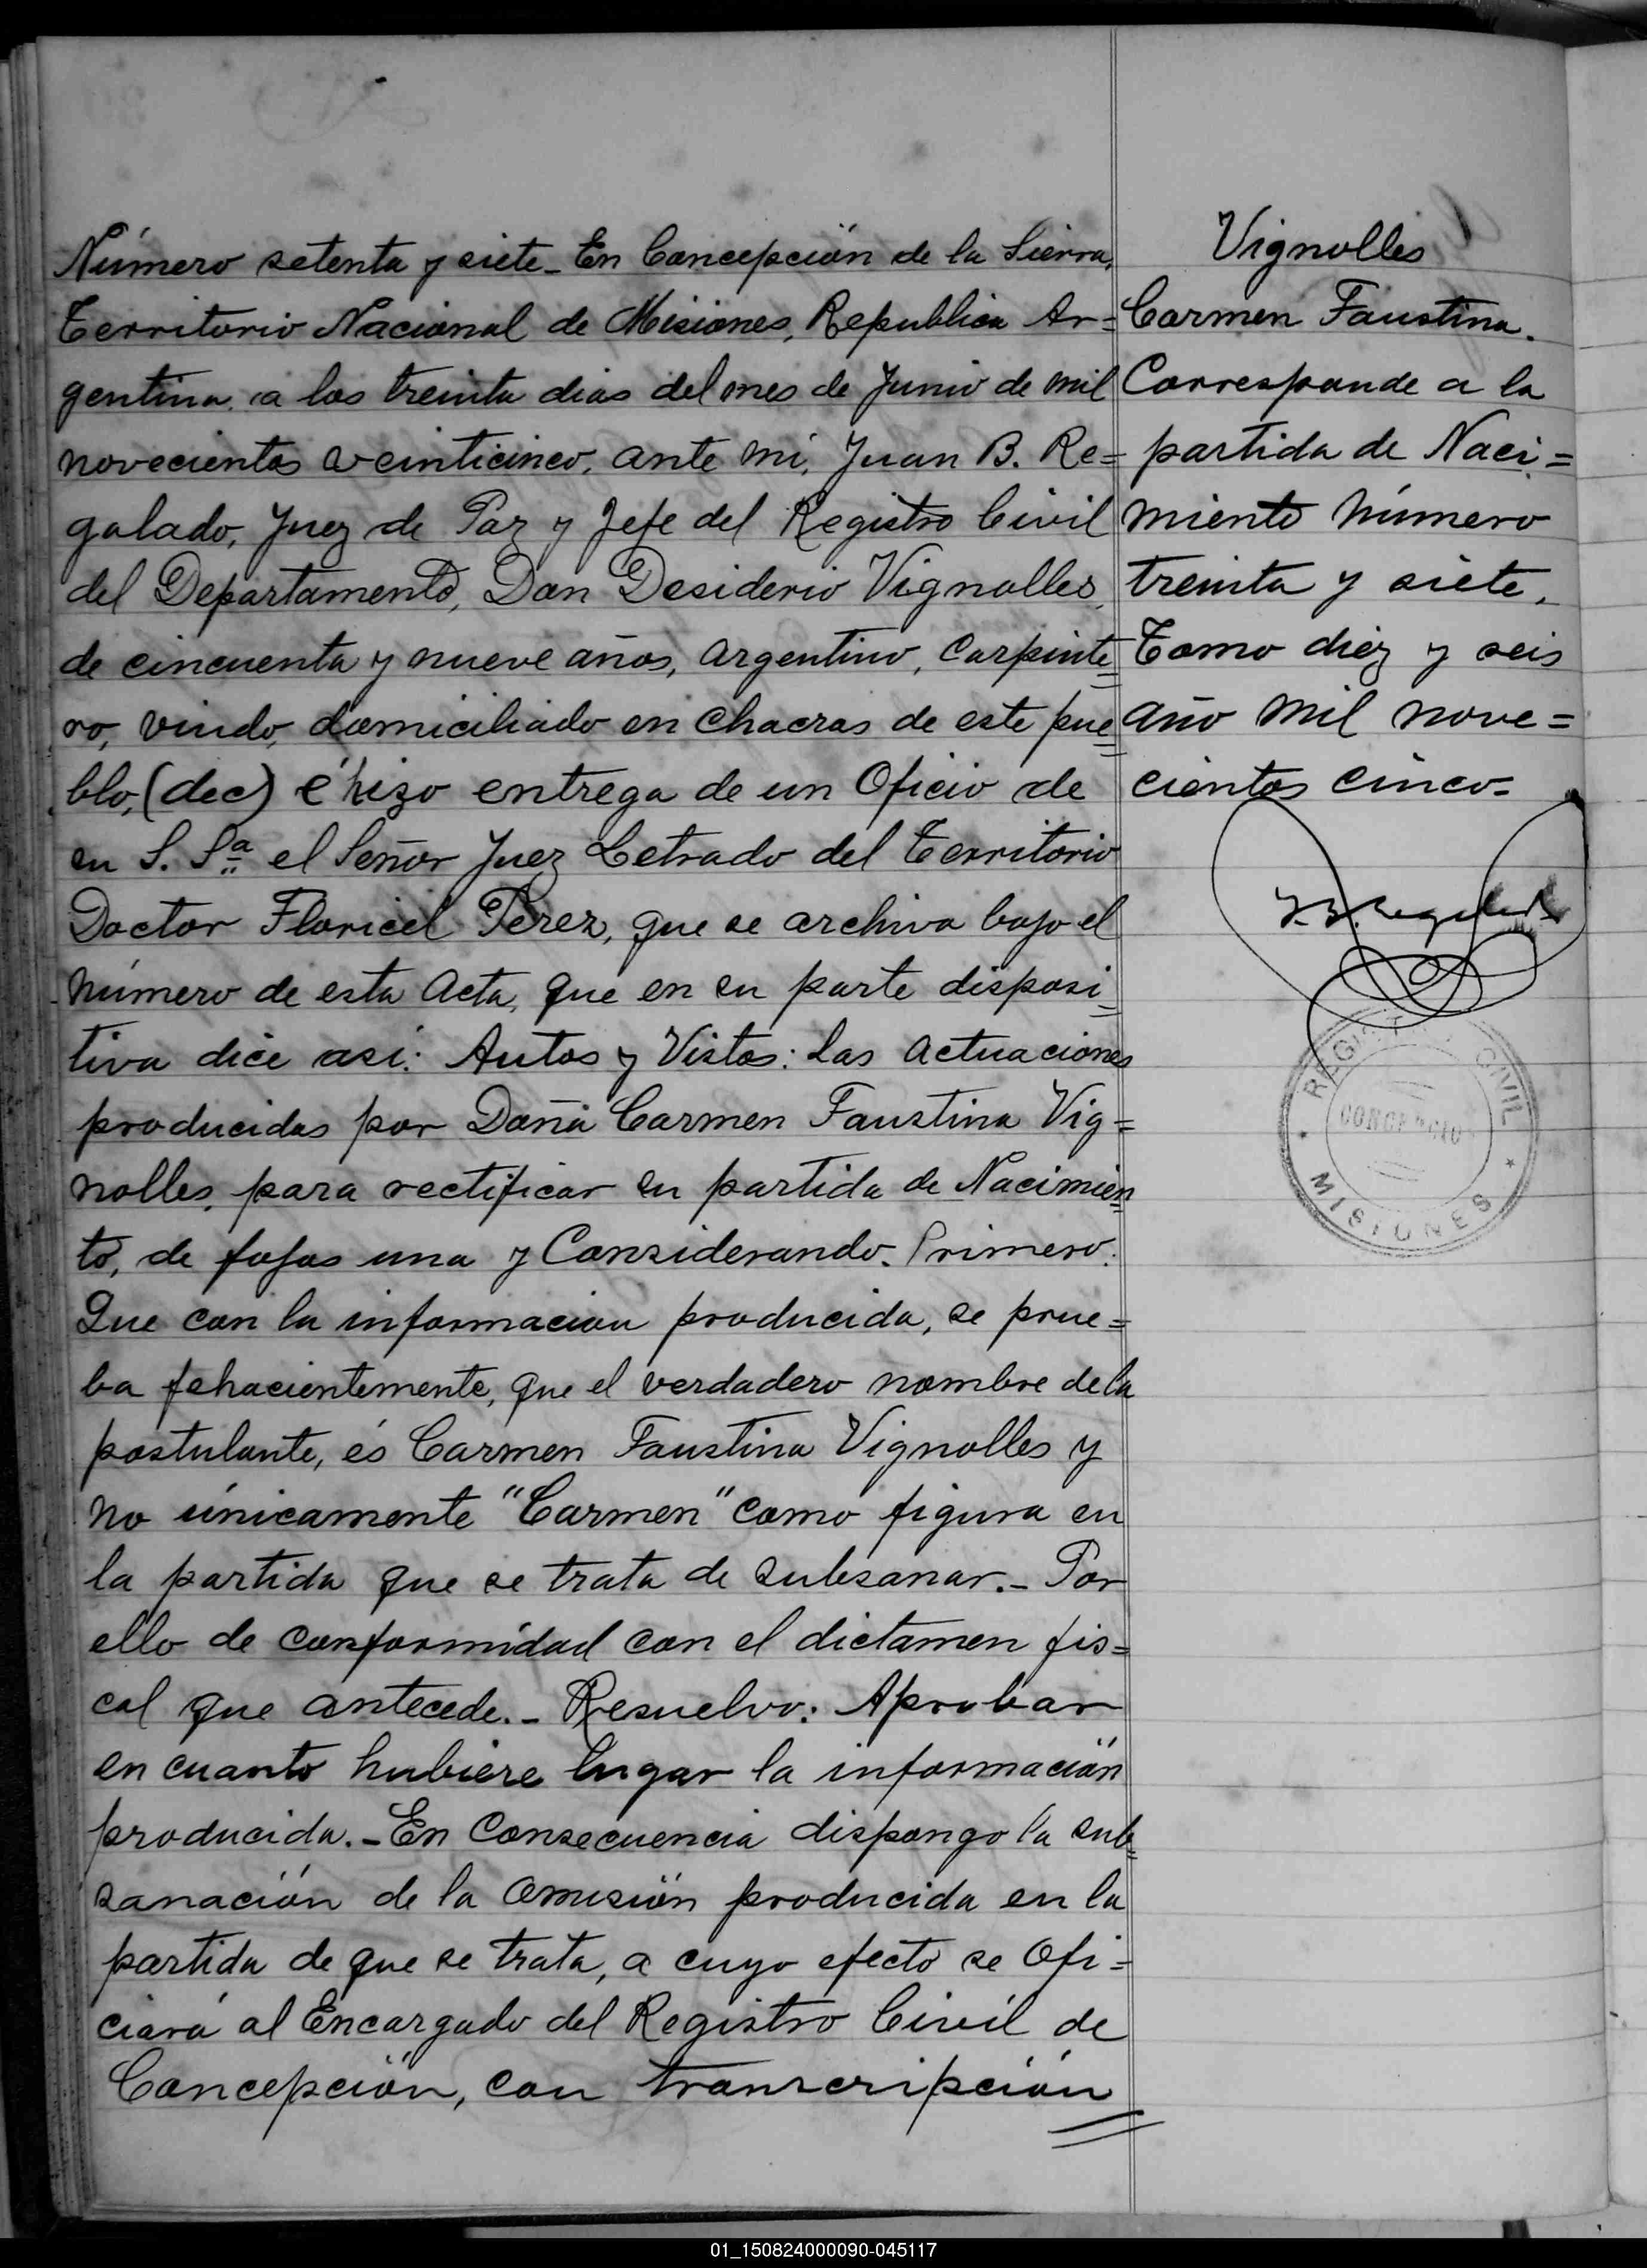 Número setenta y siete_ En Concepción de la Sierra,
Territorio Nacional de Misiones, Republica Ar=
gentina, a los treinta dias del mes de Junio de mil
novecientos veinticinco, ante mi, Juan B. Re=
galado, Juez de Paz y Jefe del Registro Civil
del Departamento, Don Desiderio Vignolles,
de cincuenta y nueve años, Argentino, Carpinte=
ro, viudo, domiciliado en chacras de este pue=
blo, (dec) é hizo entrega de un Oficio de
su S. Sª el Señor Juez Letrado del Territorio
Doctor Floricel Perez, que se archiva bajo el
número de esta Acta, que en su parte disposi=
tiva dice asi: Autos y Vistos: Las actuaciones
producidas por Doña Carmen Faustina Vig=
nolles, para rectificar su partida de Nacimien=
to, de fojas una y Considerando. Primero:
Que con la informacion producida, se prue=
ba fehacientemente, que el verdadero nombre de la
postulante, és Carmen Faustina Vignolles y
no únicamente "Carmen" como figura en
la partida que se trata de subsanar._ Por
ello de conformidad con el dictamen fis=
cal que antecede._ Resuelvo: Aprobar
en cuanto hubiere lugar la información
producida._ En Consecuencia dispongo la sub=
sanación de la Omisión producida en la
partida de que se trata, a cuyo efecto se Ofi=
ciará al Encargado del Registro Civil de
Concepción, con transcripción
Vignolles
Carmen Faustina.
Corresponde a la
partida de Naci=
miento número
treinta y siete,
Tomo diez y seis
año mil nove=
cientos cinco=
J.B. Regalado
REGISTRO CIVIL
CONCEPCION
MISIONES
01_150824000090-045117